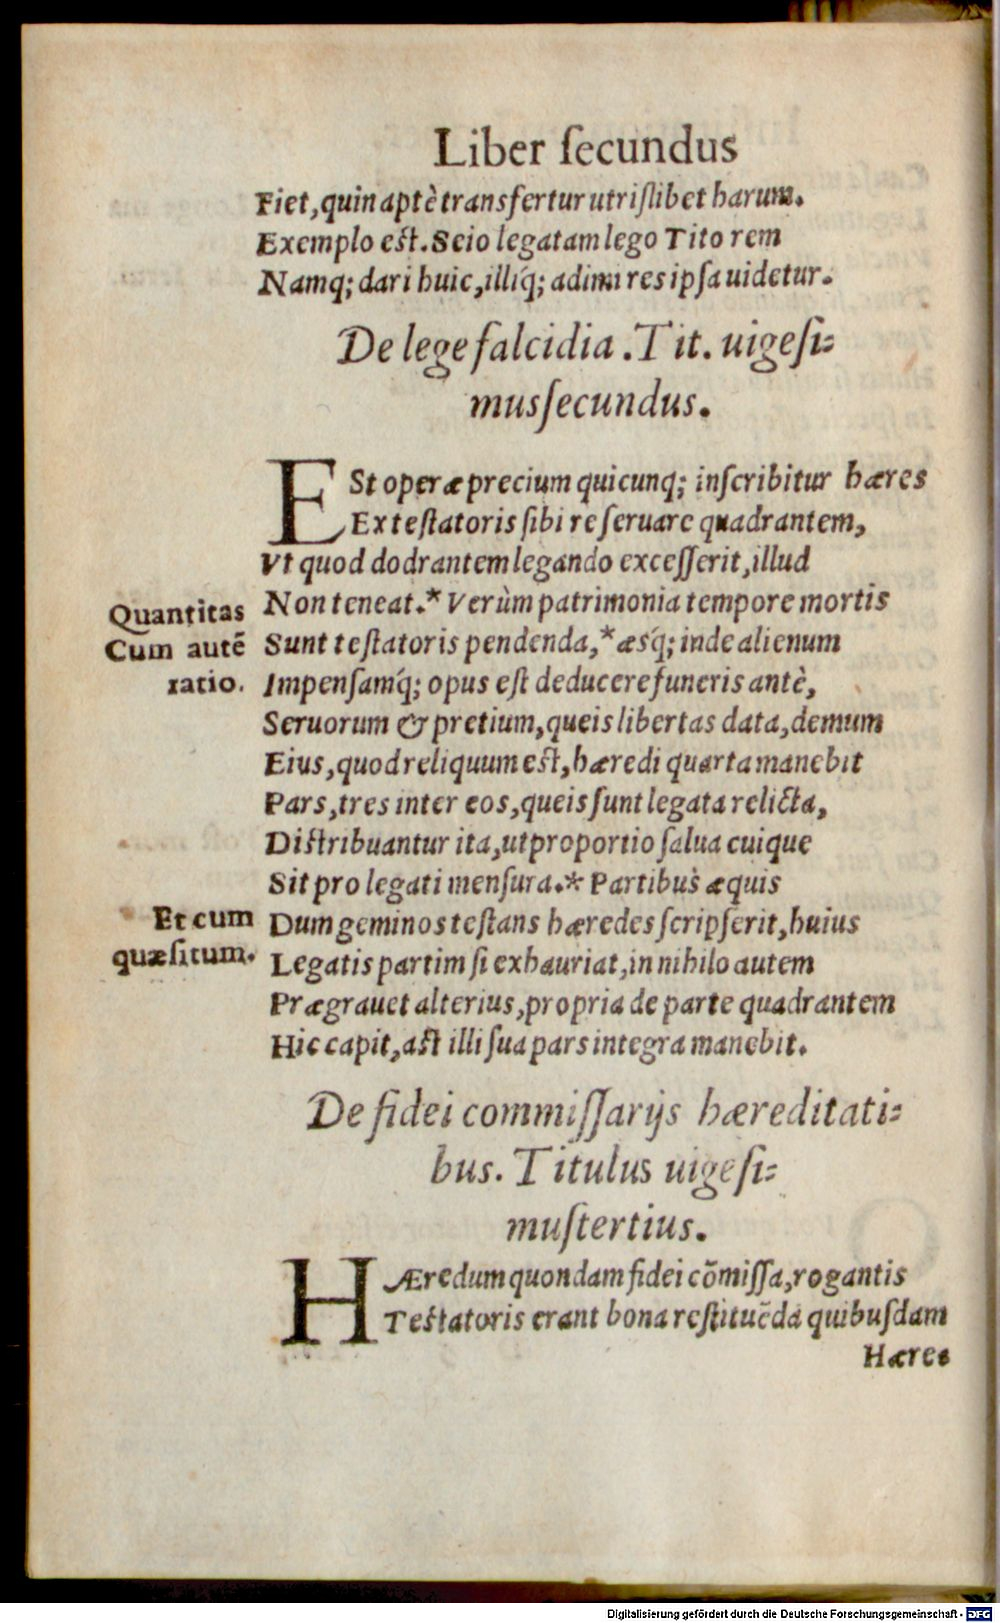 Liber ſecundus
Fiet, quin aptè transfertur utriſlibet harum.
Exemplo est. Seio legatam lego Tito rem
Namq; dari huic, illiq́; adimi res ipſa uidetur.
De lege falcidia. Tit. uigeſi-
musſecundus.
ESt operæ precium quicunq; inſcribitur hæres
Ex teſtatoris ſibi reſeruare quadrantem,
Vt quod dodrantem legando exceſſerit, illud
Non teneat.* Verùm patrimonia tempore mortis
Quantitas
Cum autẽ
ratio.
Sunt teſtatoris pendenda,* æsq́; inde alienum
Impenſamq́; opus eſt deducere funeris antè,
Seruorum & pretium, queis libertas data, demum
Eius, quod reliquum est, hæredi quarta manebit
Pars, tres inter eos, queis ſunt legata relicta,
Distribuantur ita, ut proportio ſalua cuique
Sit pro legati menſura.* Partibus æquis
Et cum
quæſitum.
Dum geminos teſtans hæredes ſcripſerit, huius
Legatis partim ſi exhauriat, in nihilo autem
Prægrauet alterius, propria de parte quadrantem
Hic capit, ast illi ſua pars integra manebit.
De fidei commiſſarijs hæreditati-
bus. Titulus uigeſi-
muſtertius.
HÆredum quondam fidei cõmiſſa, rogantis
Testatoris erant bona reſtituẽda quibuſdam
Hæres
Digitalisierung gefördert durch die Deutsche Forschungsgemeinschaft - DFG